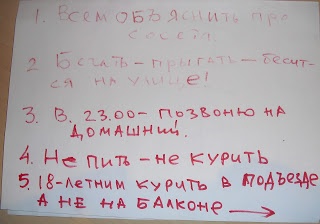 1. Всем объяснить про
соседа.
2 Бегать - прыгать - бесит-
ся на улице!
3. В. 23.00 - позвоню на
домашний.
4. Не пить - не курить
5. 18-летним курить в подъезде
а не на балконе →